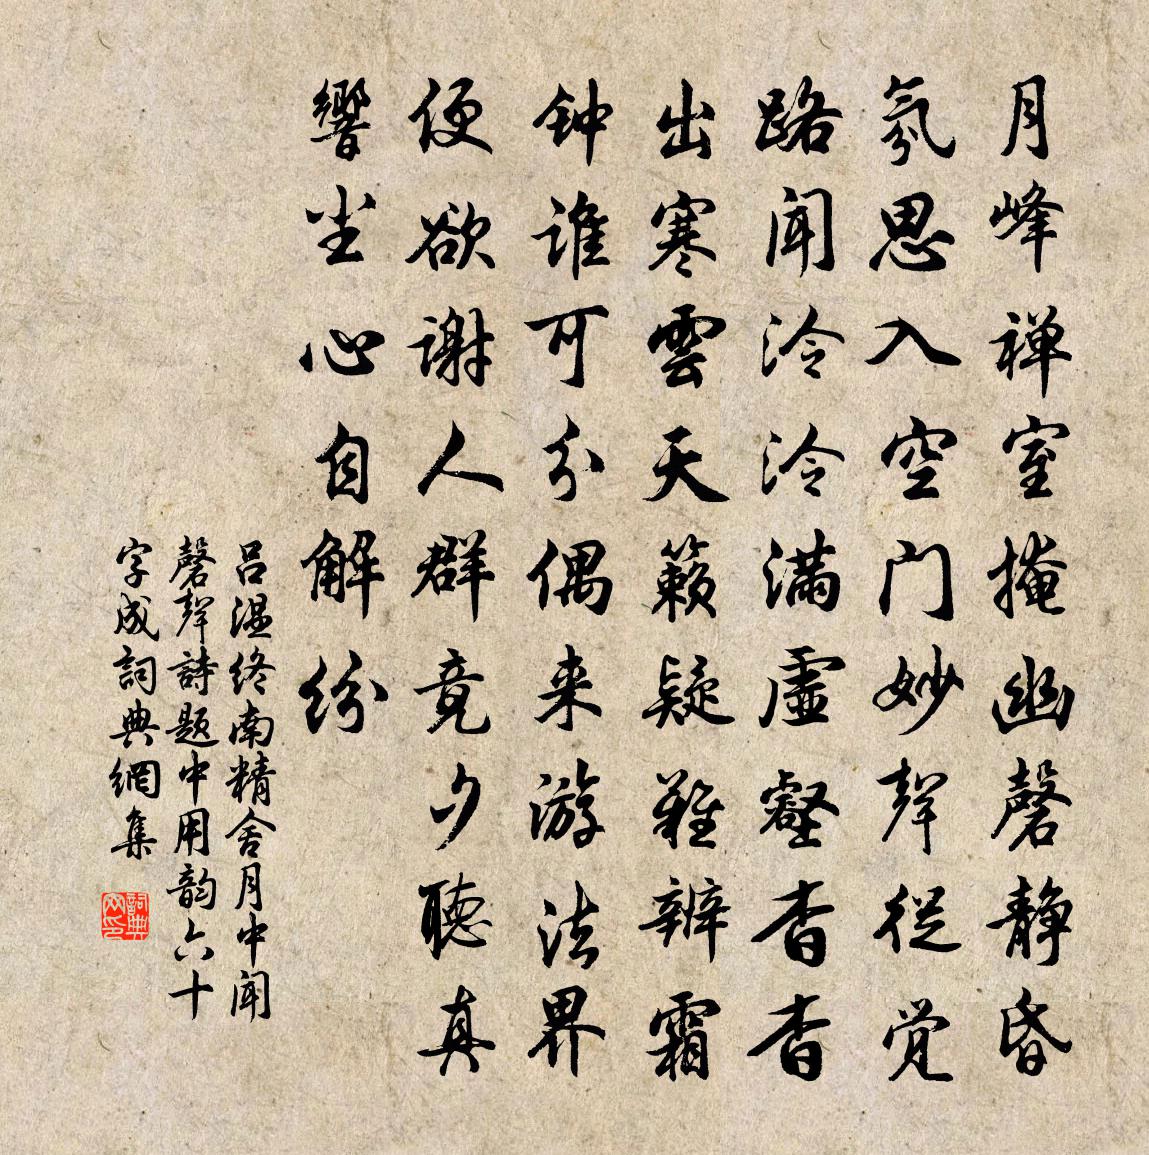 月峰禅室掩幽磬静昏
氛思入空门妙聲從觉
路闻泠泠满虚壑杳杳
出寒雲天籁疑難辨霜
钟谁可分偶来游法界
便欲谢人群竟夕聽真
響尘心自解纷
吕温终南精舍月中闻
磬聲詩题中用韵六十
字成詞典網集
詞典
网印